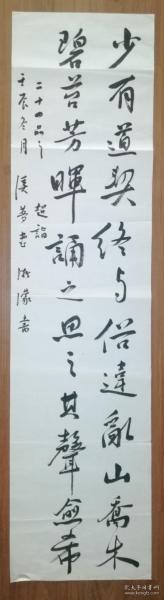 少有道契终与俗违乱山乔木
碧苔芳晖诵之思之其声愈希
二十四品之 超詣
壬辰冬月 漢夢堂 書